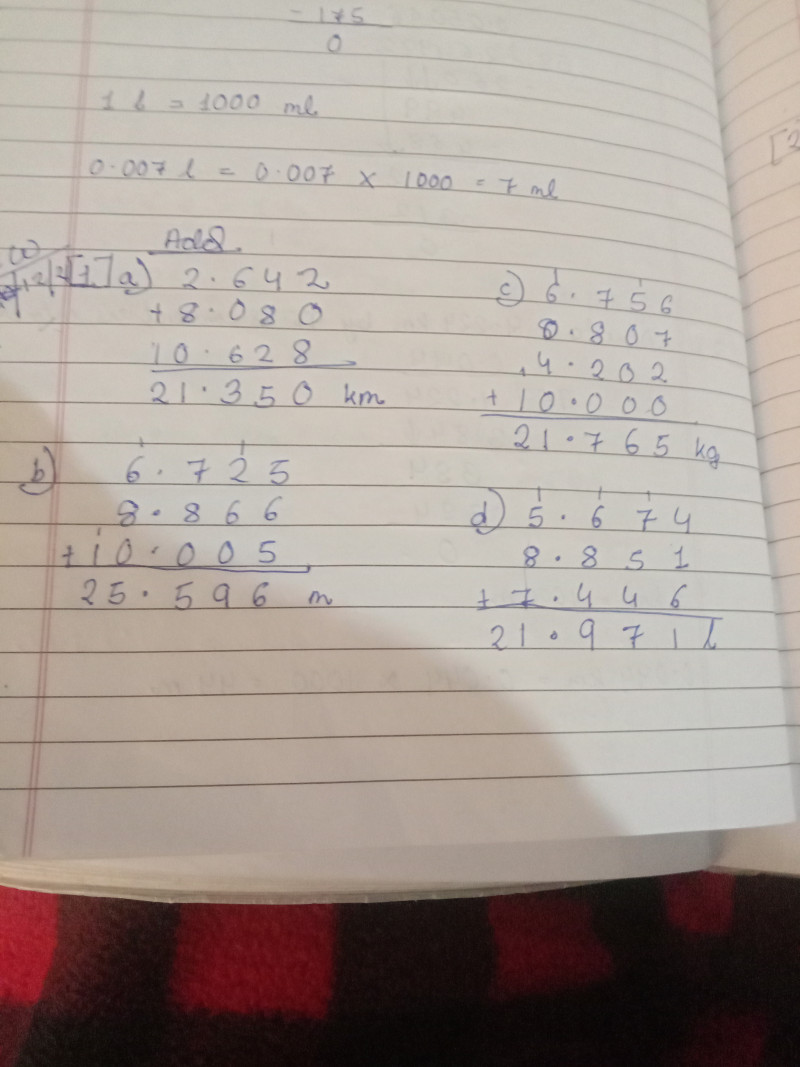 - 175
0
1 l = 1000 ml
0.007 l = 0.007 x 1000 = 7 ml
Add
[1.] a) 2.642
+ 8.080
10.628
21.350 km
b) 6.725
8.866
+ 10.005
25.596 m
c) 6.756
0.807
4.202
+ 10.000
21.765 kg
d) 5.674
8.851
+ 7.446
21.971 l